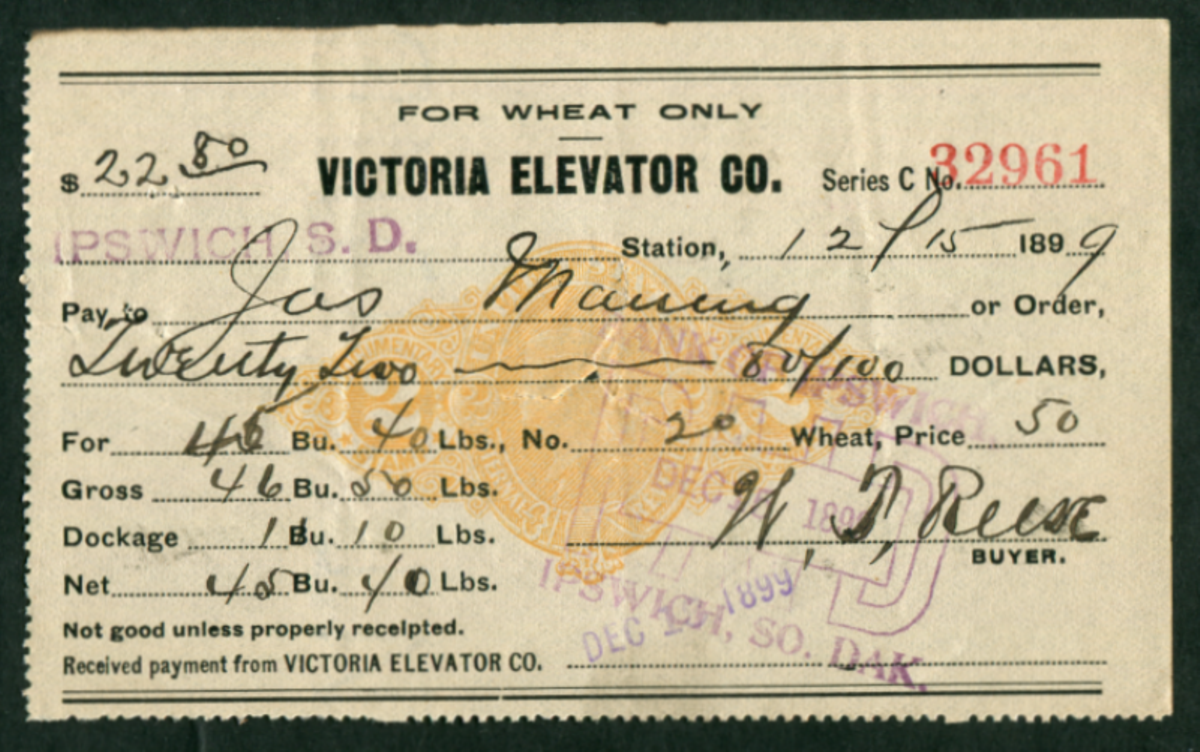 FOR WHEAT ONLY
$ 22 80
VICTORIA ELEVATOR CO.
Series C No. 32961
IPSWICH, S. D. Station, 12/15 1899
Pay to Jas Manning or Order,
Twenty Two 80/100 DOLLARS,
For 45 Bu. 40 Lbs., No. 20 Wheat, Price 50
Gross 46 Bu. 50 Lbs.
Dockage 1 Bu. 10 Lbs.
W. D. Reese
BUYER.
Net 45 Bu. 40 Lbs.
Not good unless properly receipted.
Received payment from VICTORIA ELEVATOR CO.
BANK OF IPSWICH,
PAID
DEC 1899
IPSWICH, SO. DAK.
DEC 1899
2 2